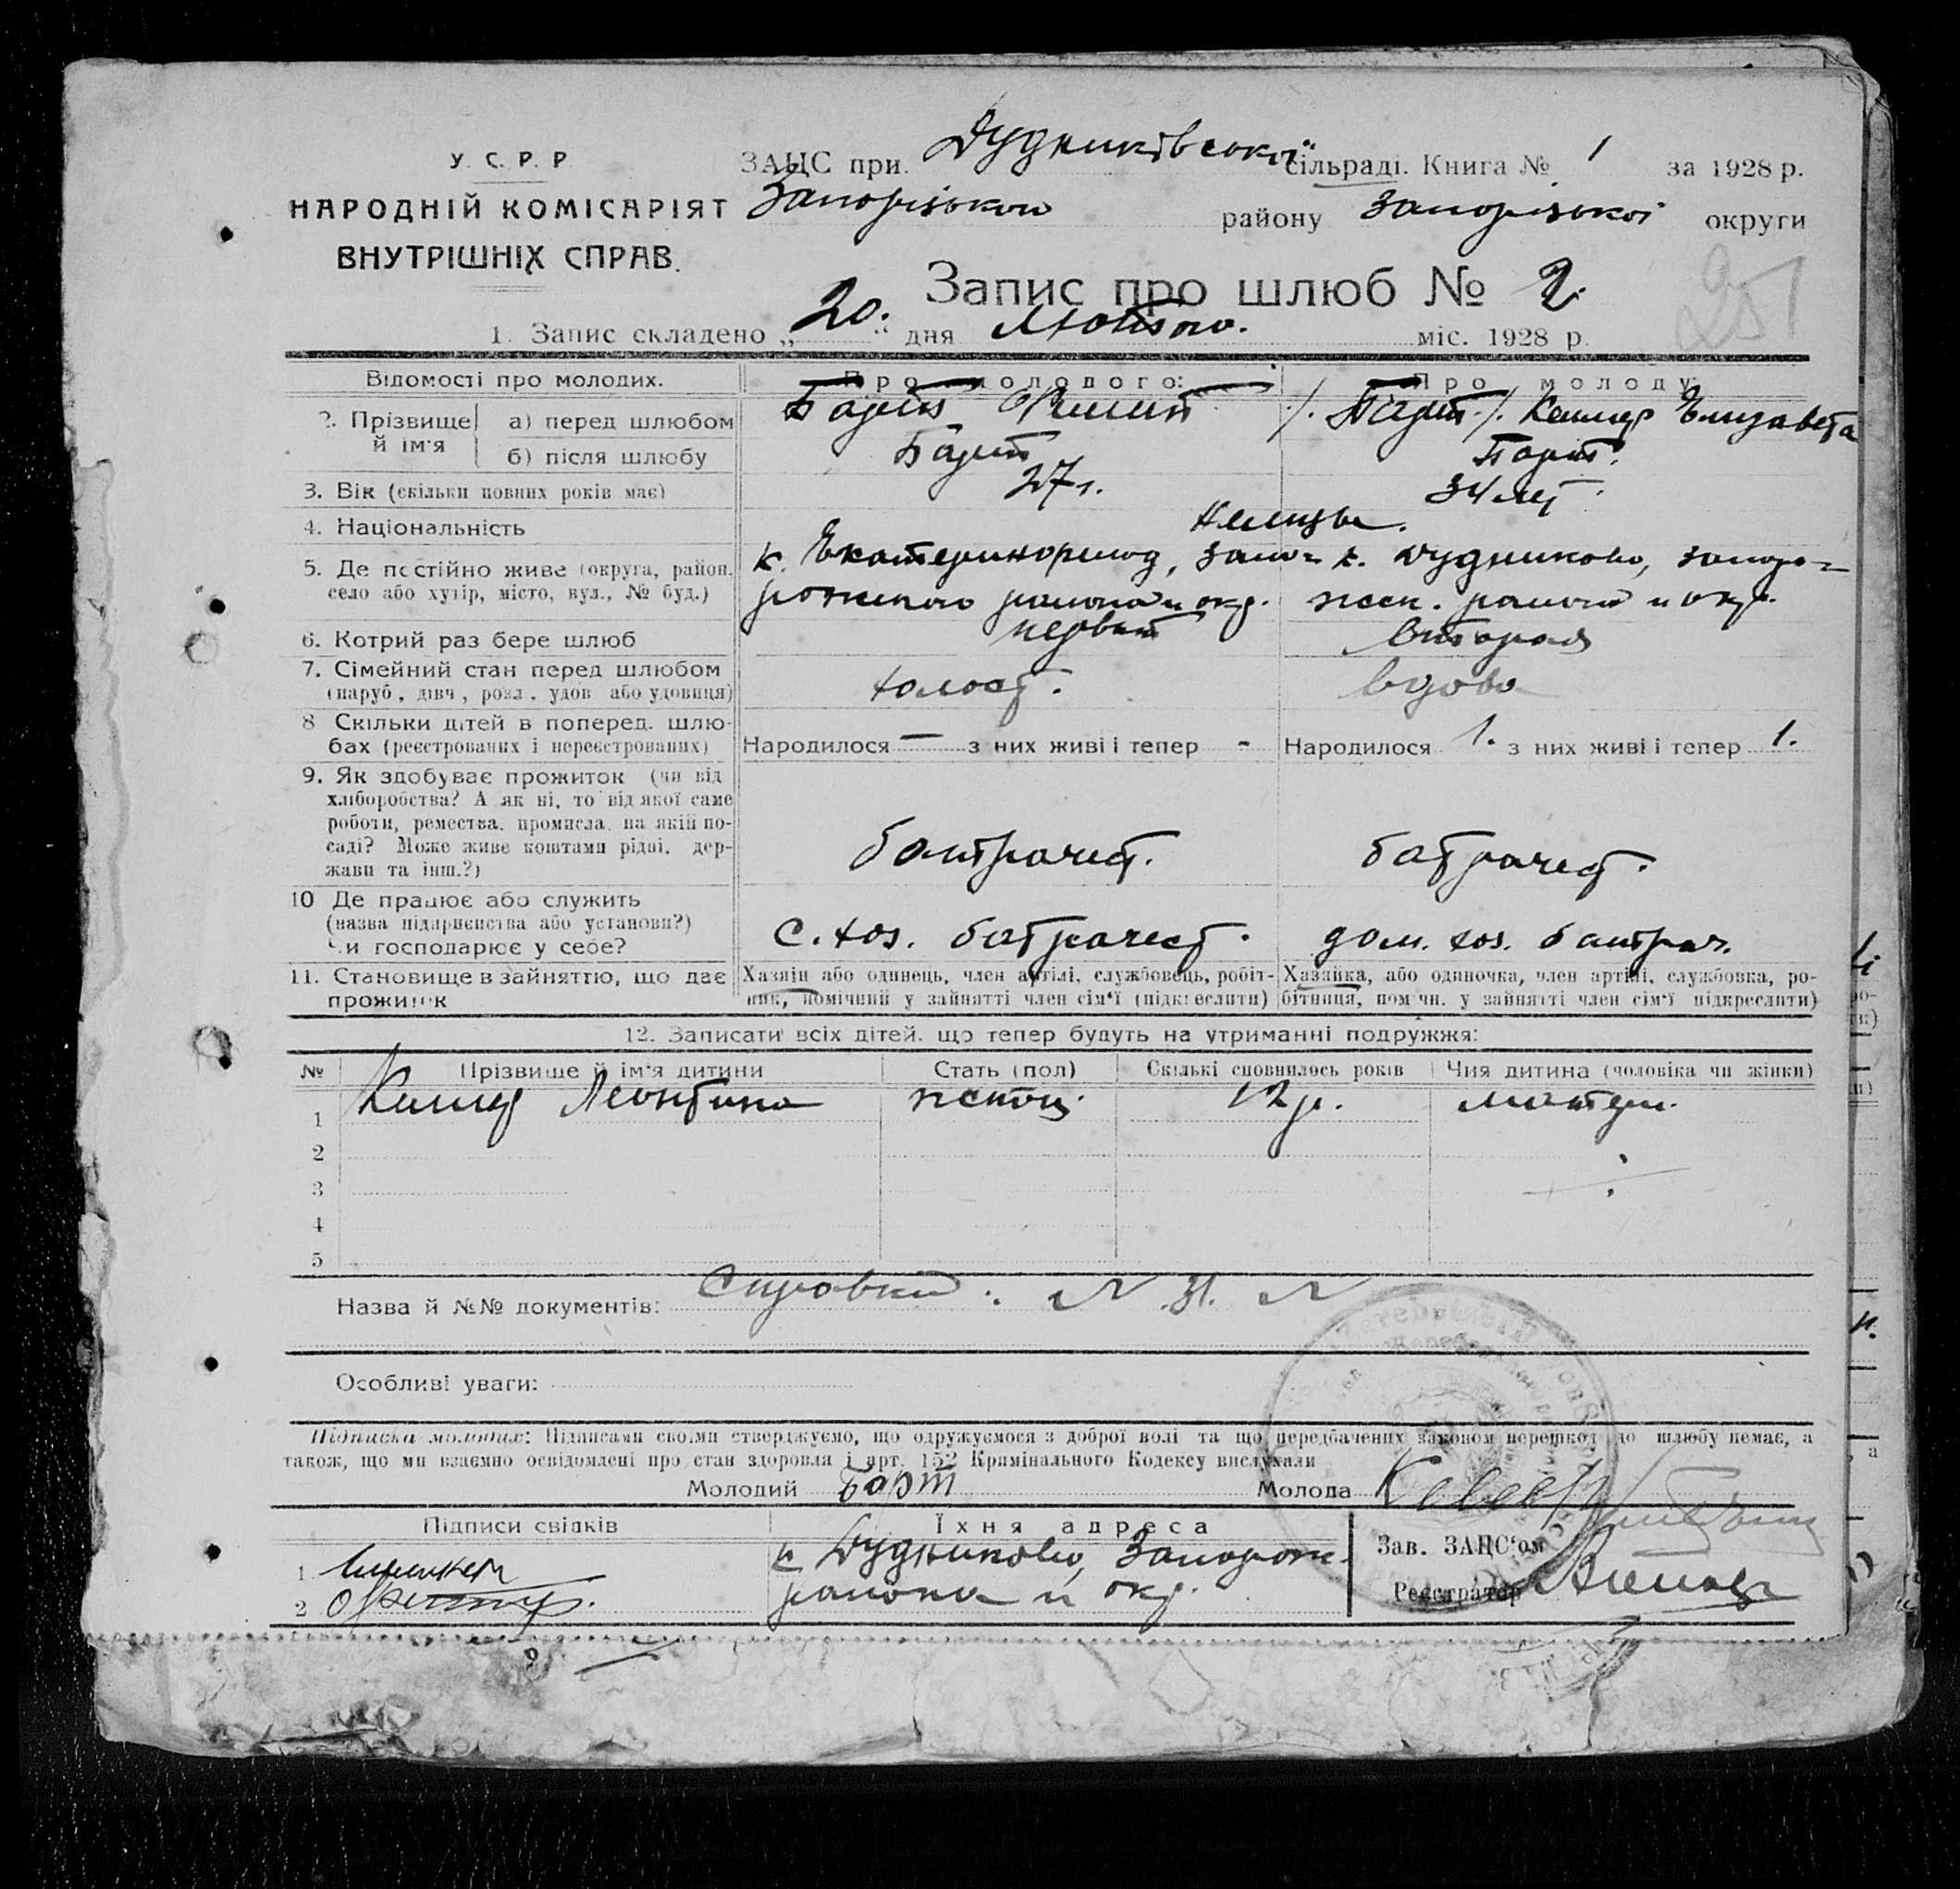 У. С. Р. Р.
НАРОДНІЙ КОМІСАРІЯТ
ВНУТРІШНІХ СПРАВ.
ЗАЦС при Дудниківської сільраді. Книга № 1 за 1928 р.
району Запорізької округи
251
Запис про шлюб № 2.
1. Запис складено „20.“ дня Лютого. міс. 1928 р.
Відомості про молодих. Про молодого: Про молоду:
2. Прізвище й ім'я
а) перед шлюбом Барт Филип /. Барт./. Келлер Елизавета
б) після шлюбу Барт Барт.
3. Вік (скільки повних років має) 27 г. 34 лет.
4. Національність Немцы.
5. Де постійно живе (округа, район, к. Запо- к. Дудниково, Запоро-
село або хутір, місто, вул., № буд.) рожского района и окр. жск. района и окр.
6. Котрий раз бере шлюб первый вторая
7. Сімейний стан перед шлюбом холост. вдова
(паруб., дівч., розл., удов. або удовиця)
8 Скільки дітей в поперед. шлю-
бах (реєстрованих і нереєстрованих) Народилося — з них живі і тепер - Народилося 1. з них живі і тепер 1.
9. Як здобуває прожиток (чи від
хліборобства? А як ні, то від якої саме
роботи, ремества, промисла, на якій по-
саді? Може живе коштами рідні, дер- батрачест. батрачест.
жави та інш.?)
10 Де працює або служить
(назва підприємства або установи?) с. хоз. батрачест. дом. хоз. батрач.
Чи господарює у себе?
11. Становище в зайняттю, що дає Хазяїн або одинець, член артілі, службовець, робіт- Хазяйка, або одиночка, член артілі, службовка, ро-
прожиток ник, помічний у зайнятті член сім'ї (підкреслити) бітниця, помічн. у зайнятті член сім'ї підкреслити)
12. Записати всіх дітей, що тепер будуть на утриманні подружжя:
№ Прізвище й ім'я дитини Стать (пол) Скількі сповнилось років Чия дитина (чоловіка чи жінки)
1 Келлер Леонтина женщ. 12 л. матери.
2
3
4
5
Назва й №№ документів: Справки: № 31. №
Особливі уваги:
Підписка молодих: Підписами своїми стверджуємо, що одружуємося з доброї волі та що передбачених законом перешкод до шлюбу немає, а
також, що ми взаємно освідомлені про стан здоровля і арт. 152 Кримінального Кодексу вислухали
Молодий Барт Молода
Підписи свідків Їхня адреса
1. к Дудниково, Запорож.
2 района и окр.
Зав. ЗАЦС'ом
Реєстратор